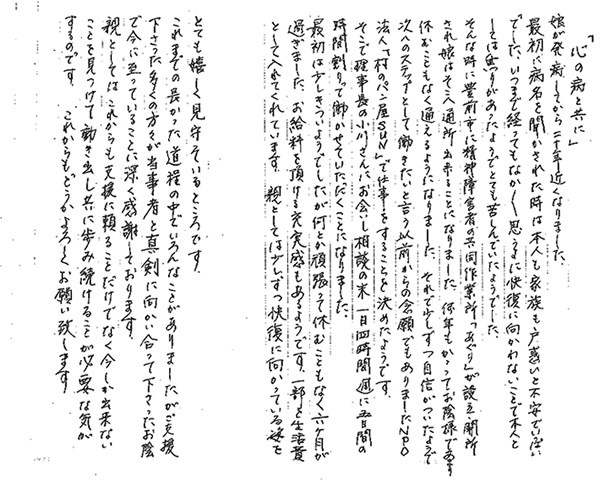 「心の病と共に」
娘が発病してから二十年近くなりました。
最初に病名を聞かされた時は本人も家族も戸惑いと不安でいっぱい
でした。いつまで経ってもなかなか思うように快復に向かわないことで本人と
しては焦りがあったようでとても苦しんでいたようでした。
そんな時に豊前市に精神障害者の共同作業所「あぐり」が設立・開所
され娘はそこへ通所出来ることになりました。何年もかってお陰様であまり
休むこともなく通えるようになりました。それで少しずつ自信がついたようで
次へのステップとして働きたいと言う以前からの念願でもありましたNPO
法人「村のパン屋SUN」で仕事をすることを決めたようです。
そこで理事長の小川さんにお会いし相談の末一日四時間週に五日間の
時間割りで働かせていただくことになりました。
最初は少しきついようでしたが何とか頑張って休むこともなく六ヶ月が
過ぎました。お給料を頂ける充実感もあるようです。一部を生活費
として入れてくれています。親としては少しずつ快復に向かっている姿を
とても嬉しく見守っているところです。
これまでの長かった道程の中でいろんなことがありましたがご支援
下さった多くの方々が当事者と真剣に向かい合って下さったお陰
で今に至っていることに深く感謝しております。
親としてはこれからも支援に頼ることだけでなく今しか出来ない
ことを見つけて動き出し共に歩み続けることが必要な気が
するのです。これからもどうかよろしくお願い致します。